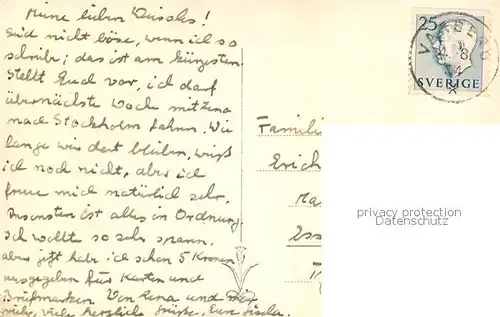 Meine lieben Dussels!
Seid nicht böse, wenn ich so
schreibe; das ist am kürzesten.
Stellt Euch vor, ich darf
übernächste Woche mit Lena
nach Stockholm fahren. Wie
lange wir dort bleiben, weiß
ich noch nicht, aber ich
freue mich natürlich sehr.
Ansonsten ist alles in Ordnung.
Ich wollte so sehr sparen,
aber jetzt hab ich schon 5 Kronen
ausgegeben für Karten und
Briefmarken. Von Lena und
viele herzliche Grüße, Eure Gisela.
25
SVERIGE
VARBERG
Familie
Erich
privacy protection
www.Ansichtskartenhandel.com